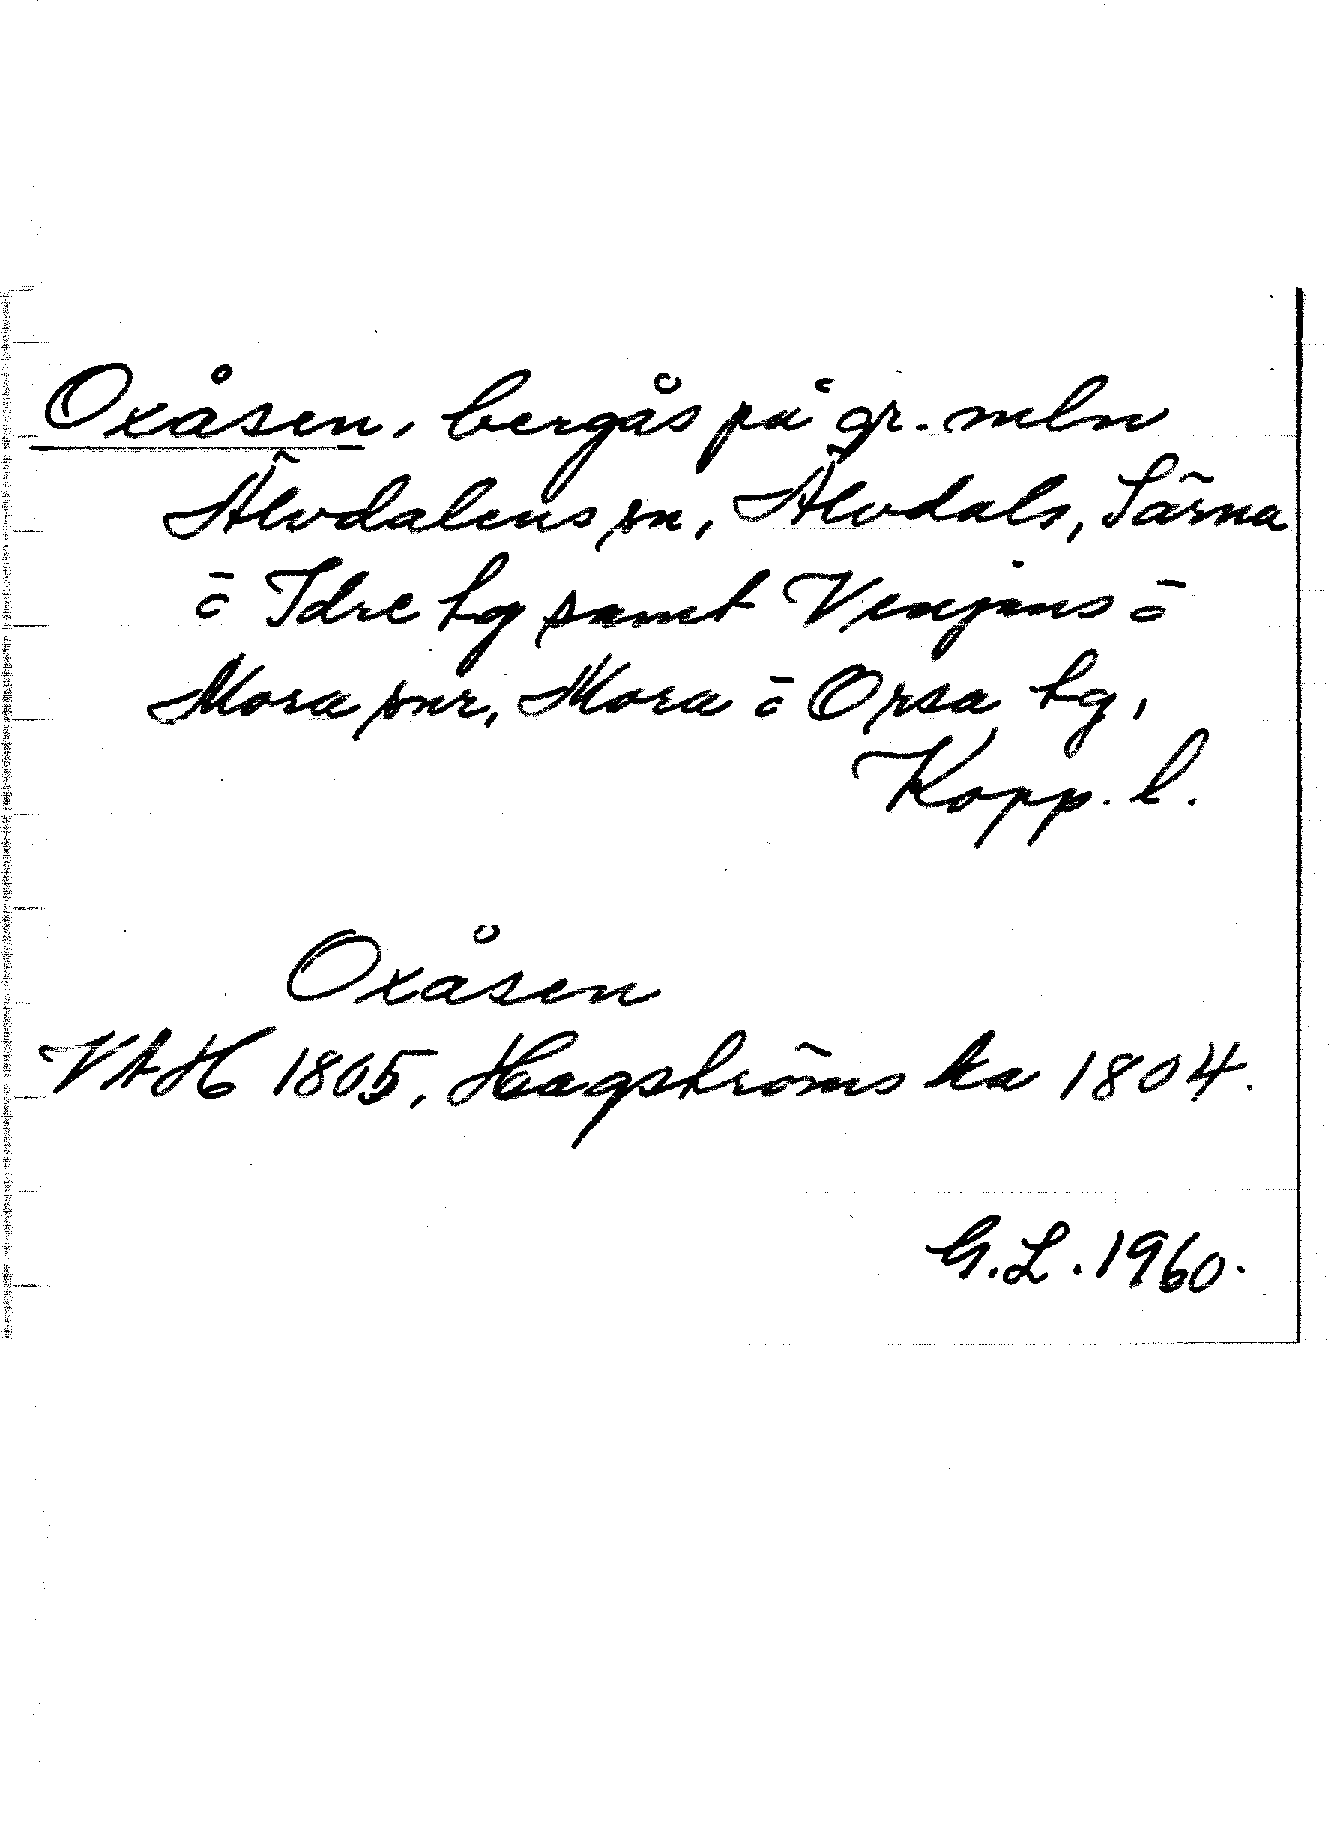 Oxåsen, bergås på gr. mln
Älvdalens sn, Älvdals, Särna
o Idre tg samt Venjans o
Mora snr, Mora o Orsa tg,
Kopp. l.
Oxåsen
VAH 1805, Hagströms ka 1804.
G.L. 1960.